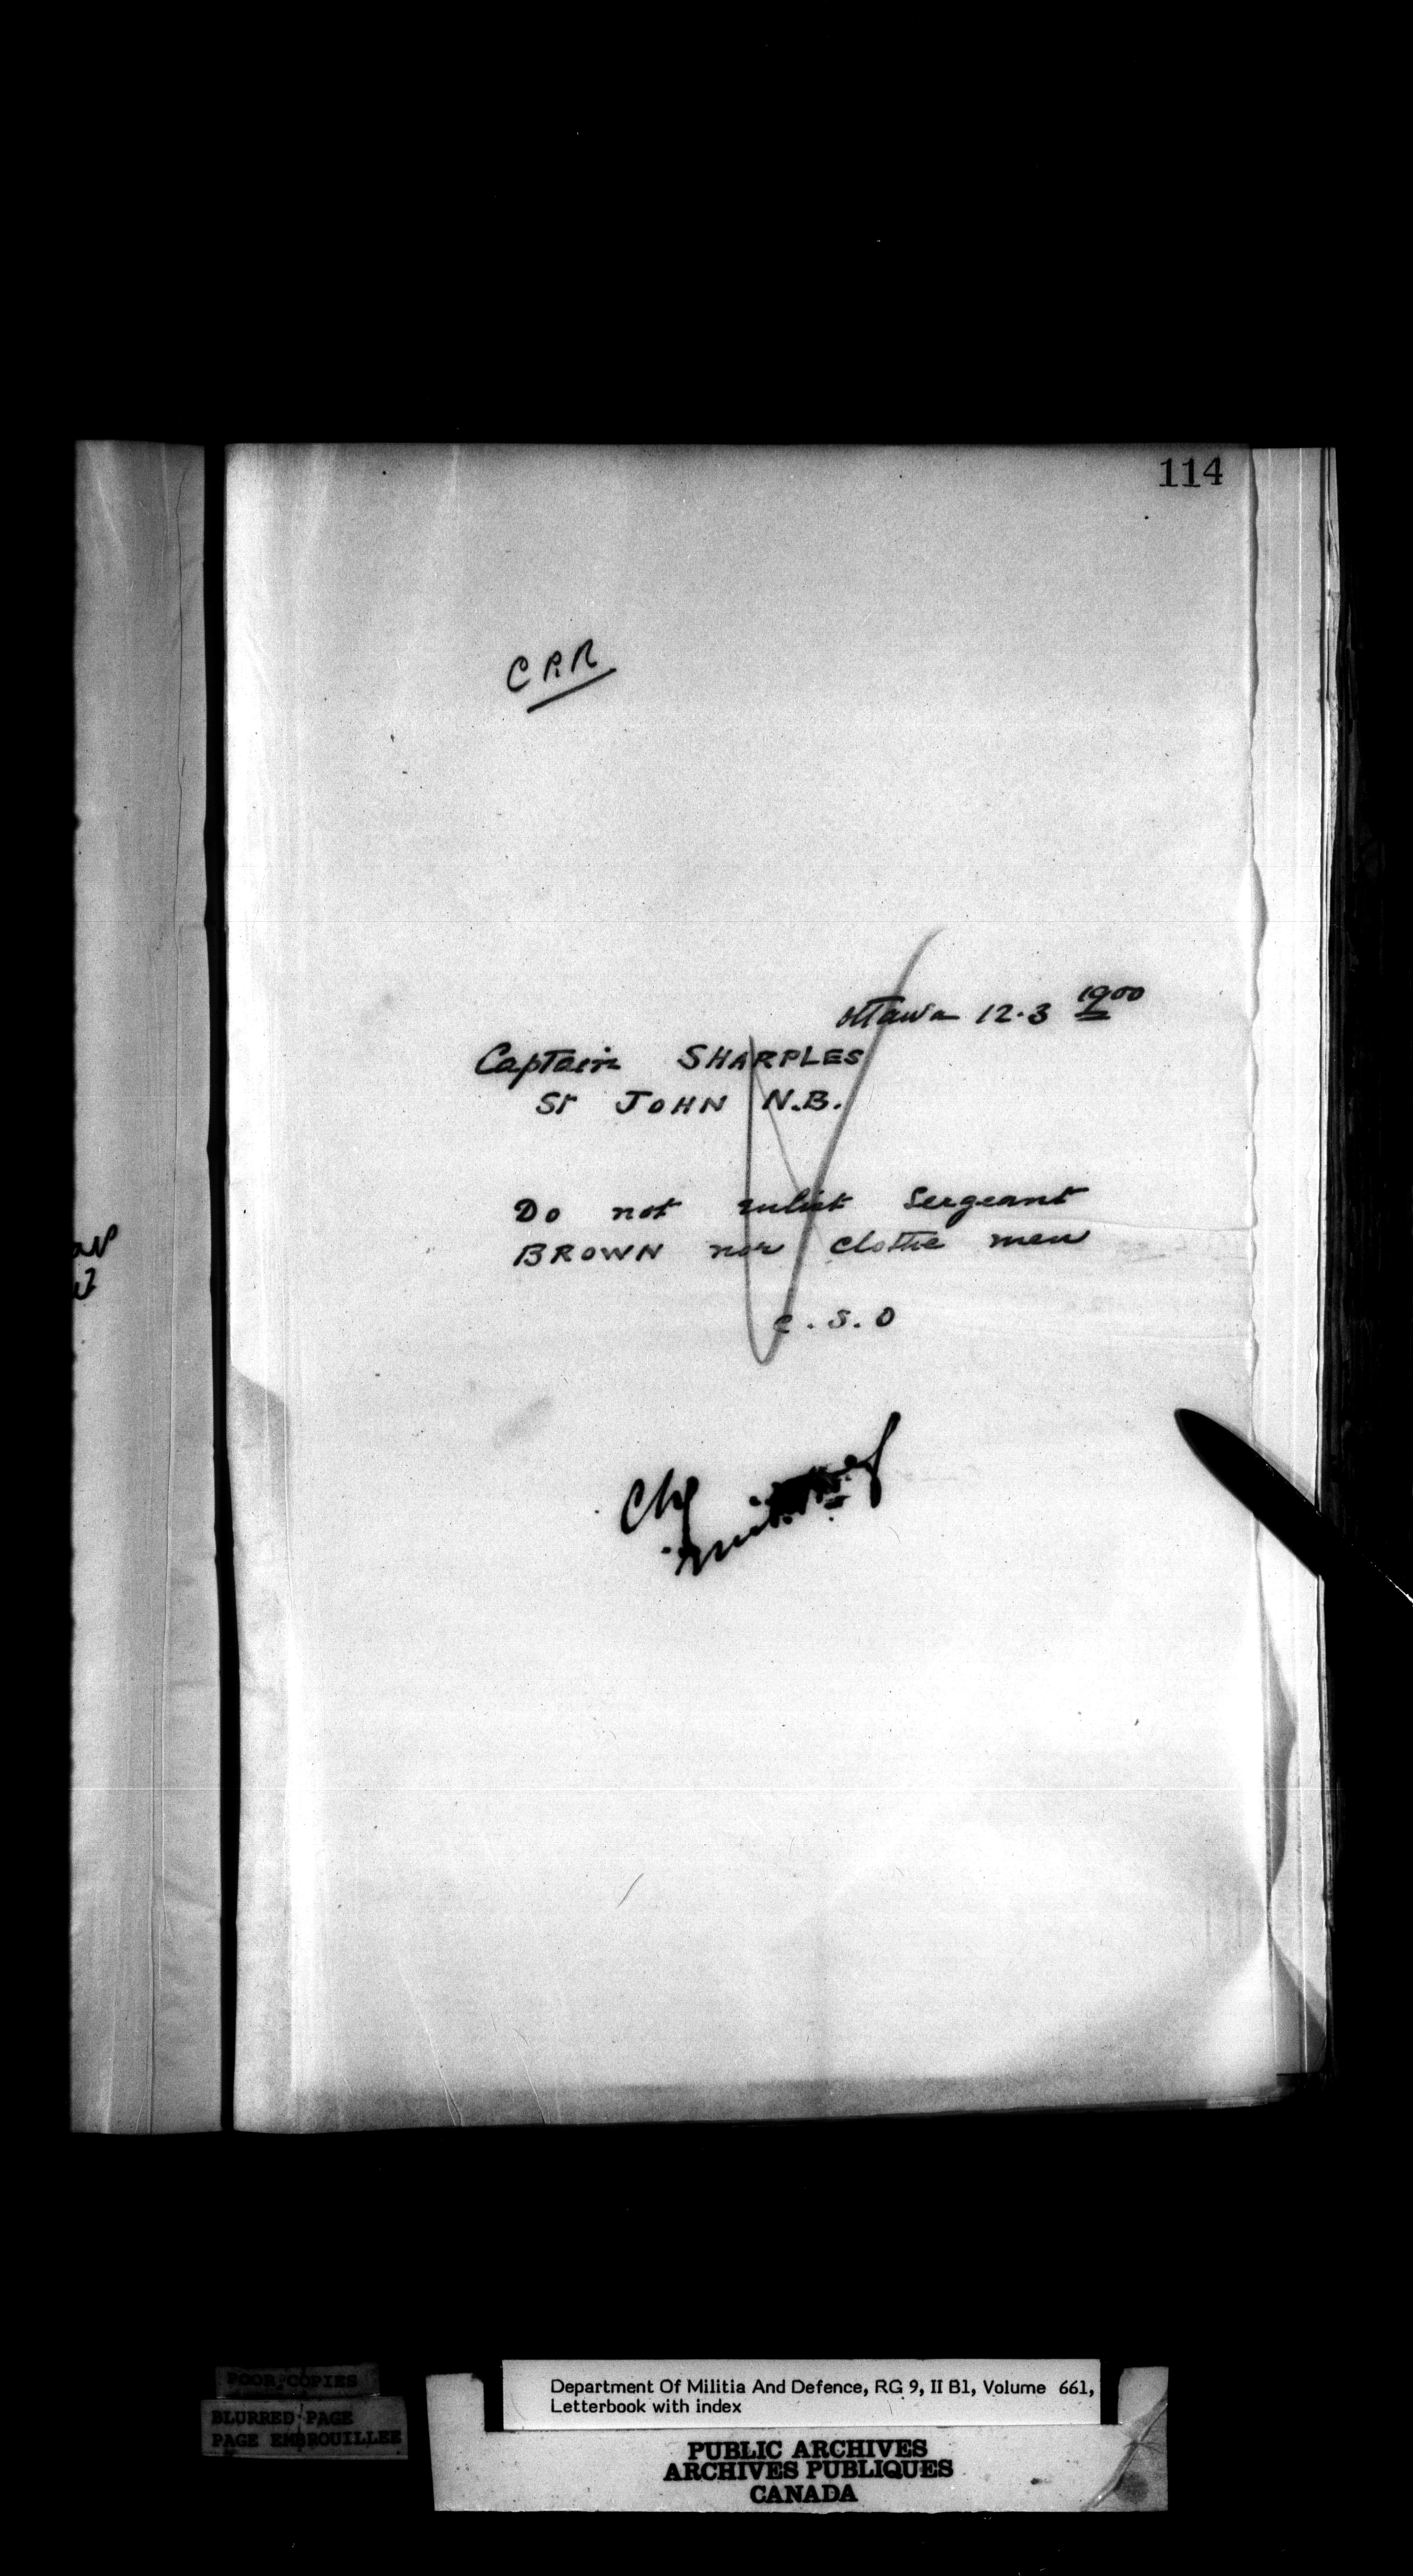 114
C P.R
Ottawa 12.3 1900
Captain SHARPLES
St JOHN N.B.
Do not enlist Sergeant
BROWN nor clothe men
C.S.O
Chg
POOR COPIES
BLURRED PAGE
PAGE EMBROUILLEE
Department Of Militia And Defence, RG 9, II B1, Volume 661,
Letterbook with index
PUBLIC ARCHIVES
ARCHIVES PUBLIQUES
CANADA